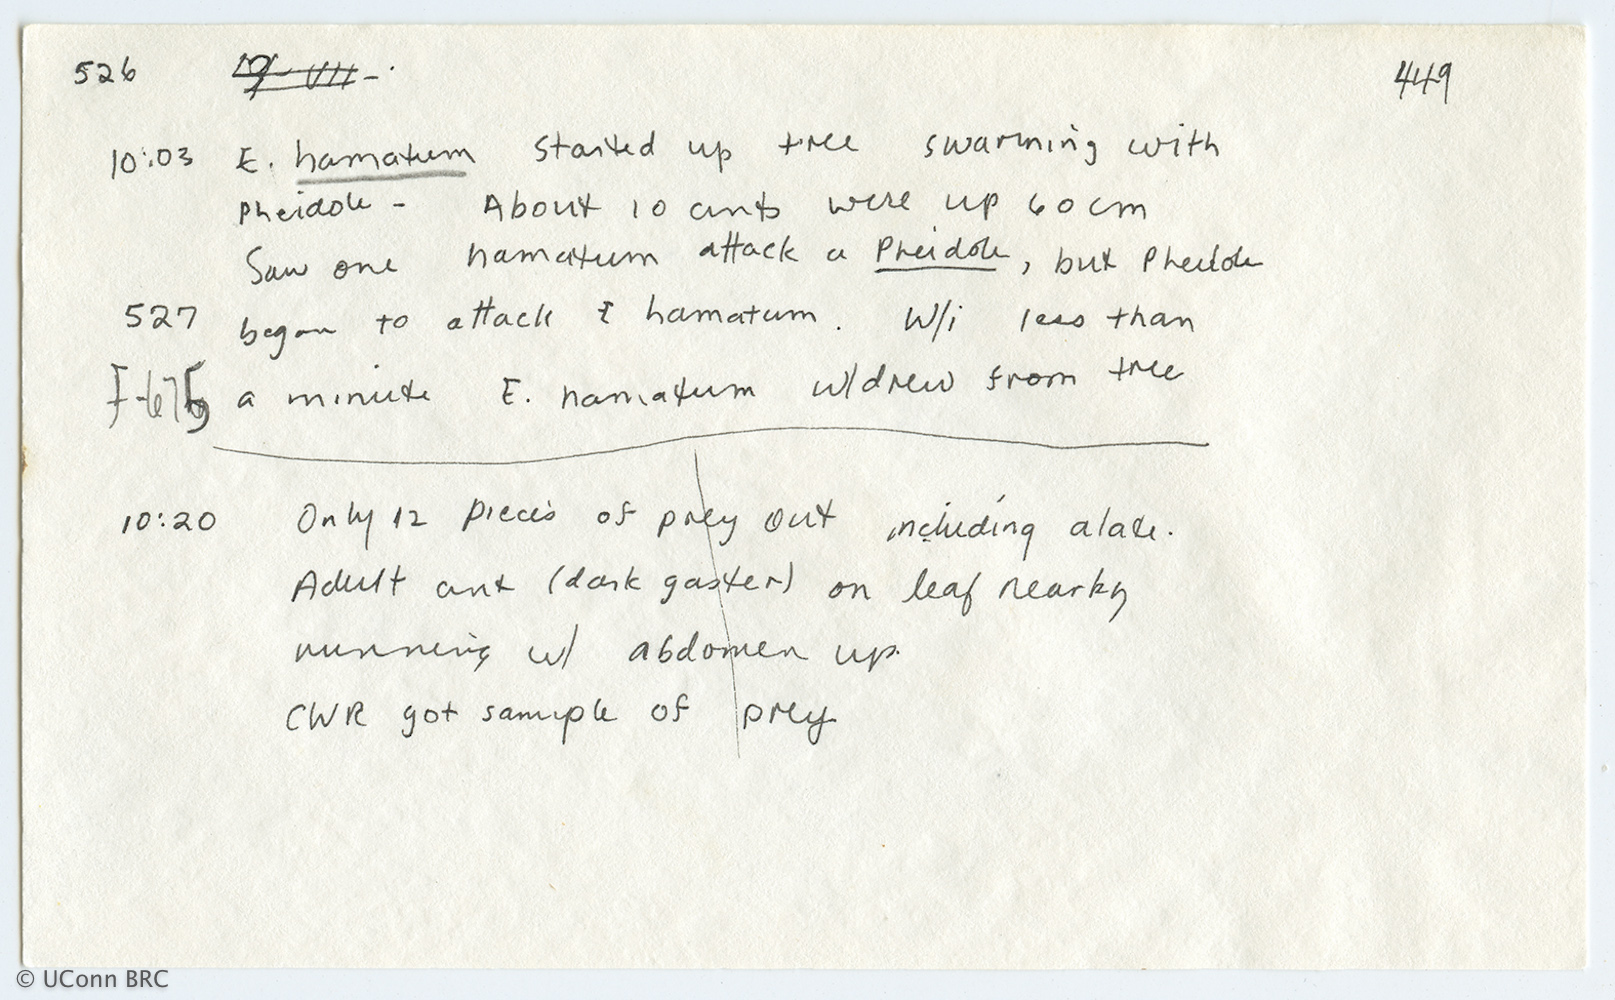 526 449
10:03 E. hamatum started up tree swarming with
Pheidole - About 10 ants were up 60 cm
Saw one hamatum attack a Pheidole, but Pheidole
527 began to attack E hamatum. W/i less than
a minute E. hamatum w/drew from tree
10:20 Only 12 pieces of prey out including alate.
Adult ant (dark gaster) on leaf nearby
running w/ abdomen up.
CWR got sample of prey.
© UConn BRC